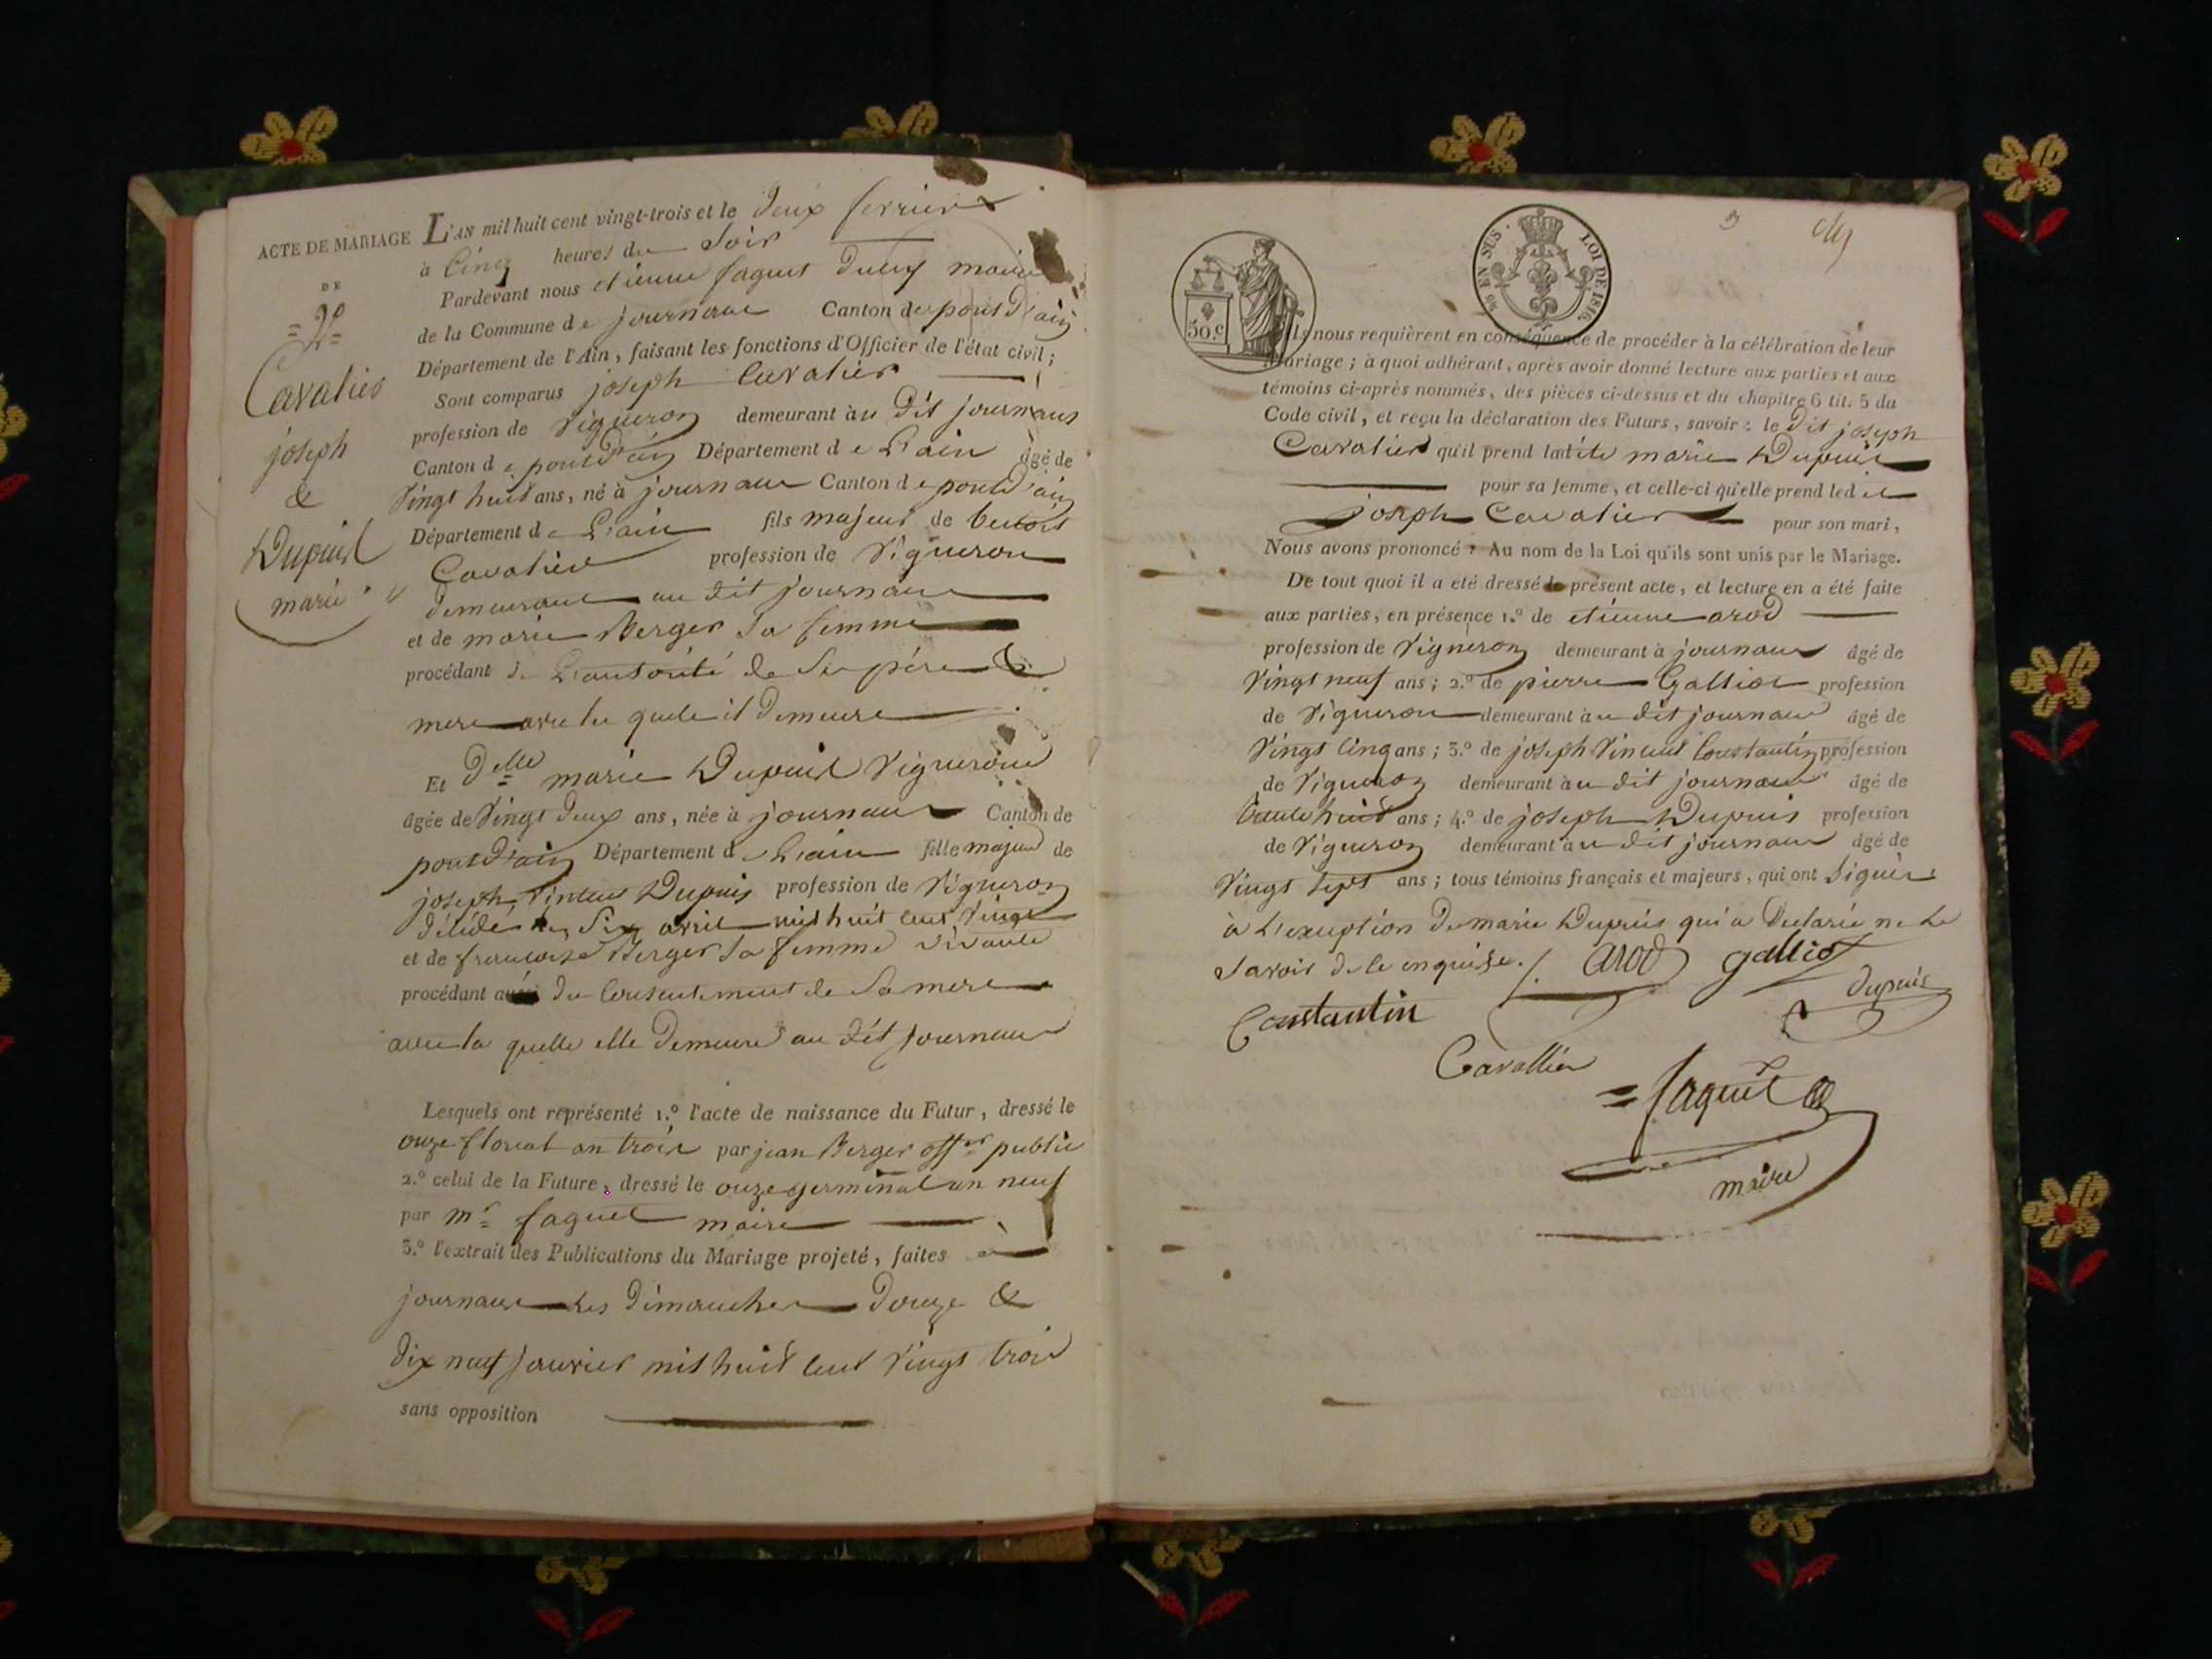 ACTE DE MARIAGE
DE
= 2e =
Cavalier
joseph
&
Dupuis
marie
L'AN mil huit cent vingt-trois et le deux fevrier
à Cinq heures du Soir
Pardevant nous etienne faguet maire
de la Commune de journaux Canton de pont d'ain
Département de l'Ain, faisant les fonctions d'Officier de l'état civil;
Sont comparus joseph Cavalier
profession de vigneron demeurant au dit journaux
Canton de pont d'ain Département de L'ain âgé de
vingt huit ans, né à journaux Canton de pont d'ain
Département de L'ain fils majeur de benoit
Cavalier profession de vigneron
demeurant au dit journaux
et de marie Berger Sa femme
procédant de L'autorité de Se père &
mere avec les quels il demeure
Et Delle marie Dupuis vigneronne
âgée de vingt deux ans, née à journaux Canton de
pont d'ain Département de L'ain fille majeur de
joseph vincent Dupuis profession de vigneron
décédé le Six avril mil huit cent vingt
et de francoise Berger Sa femme vivante
procédant du Consentement de Sa mere
avec la quelle elle demeure au dit journaux
Lesquels ont représenté 1.° l'acte de naissance du Futur, dressé le
onze floreal an trois par jean Berger offer public
2.° celui de la Future, dressé le onze germinal an neuf
par mr faguet maire
3.° l'extrait des Publications du Mariage projeté, faites à
journaux les dimanches douze &
dix neuf janvier mil huit cent vingt trois
sans opposition
50.c
EN SUS. LOI DE 1816.
3
Ils nous requièrent en conséquence de procéder à la célébration de leur
Mariage; à quoi adhérant, après avoir donné lecture aux parties et aux
témoins ci-après nommés, des pièces ci-dessus et du chapitre 6 tit. 5 du
Code civil, et reçu la déclaration des Futurs, savoir: le dit joseph
Cavalier qu'il prend ladite marie Dupuis
pour sa femme, et celle-ci qu'elle prend ledit
joseph Cavalier pour son mari,
Nous avons prononcé: Au nom de la Loi qu'ils sont unis par le Mariage.
De tout quoi il a eté dressé le présent acte, et lecture en a été faite
aux parties, en présence 1.° de etienne arod
profession de vigneron demeurant à journaux âgé de
vingt neuf ans; 2.° de pierre Galliot profession
de vigneron demeurant au dit journaux âgé de
vingt Cinq ans; 3.° de joseph vincent Constantin profession
de vigneron demeurant au dit journaux âgé de
trente huit ans; 4.° de joseph Dupuis profession
de vigneron demeurant au dit journaux âgé de
vingt Sept ans; tous témoins français et majeurs, qui ont Signés
à L'exception de marie Dupuis qui a Declarée ne Le
Savoir de Ce enquise.
arod galliot
Dupuis
Constantin
Cavallier
= faguet
maire